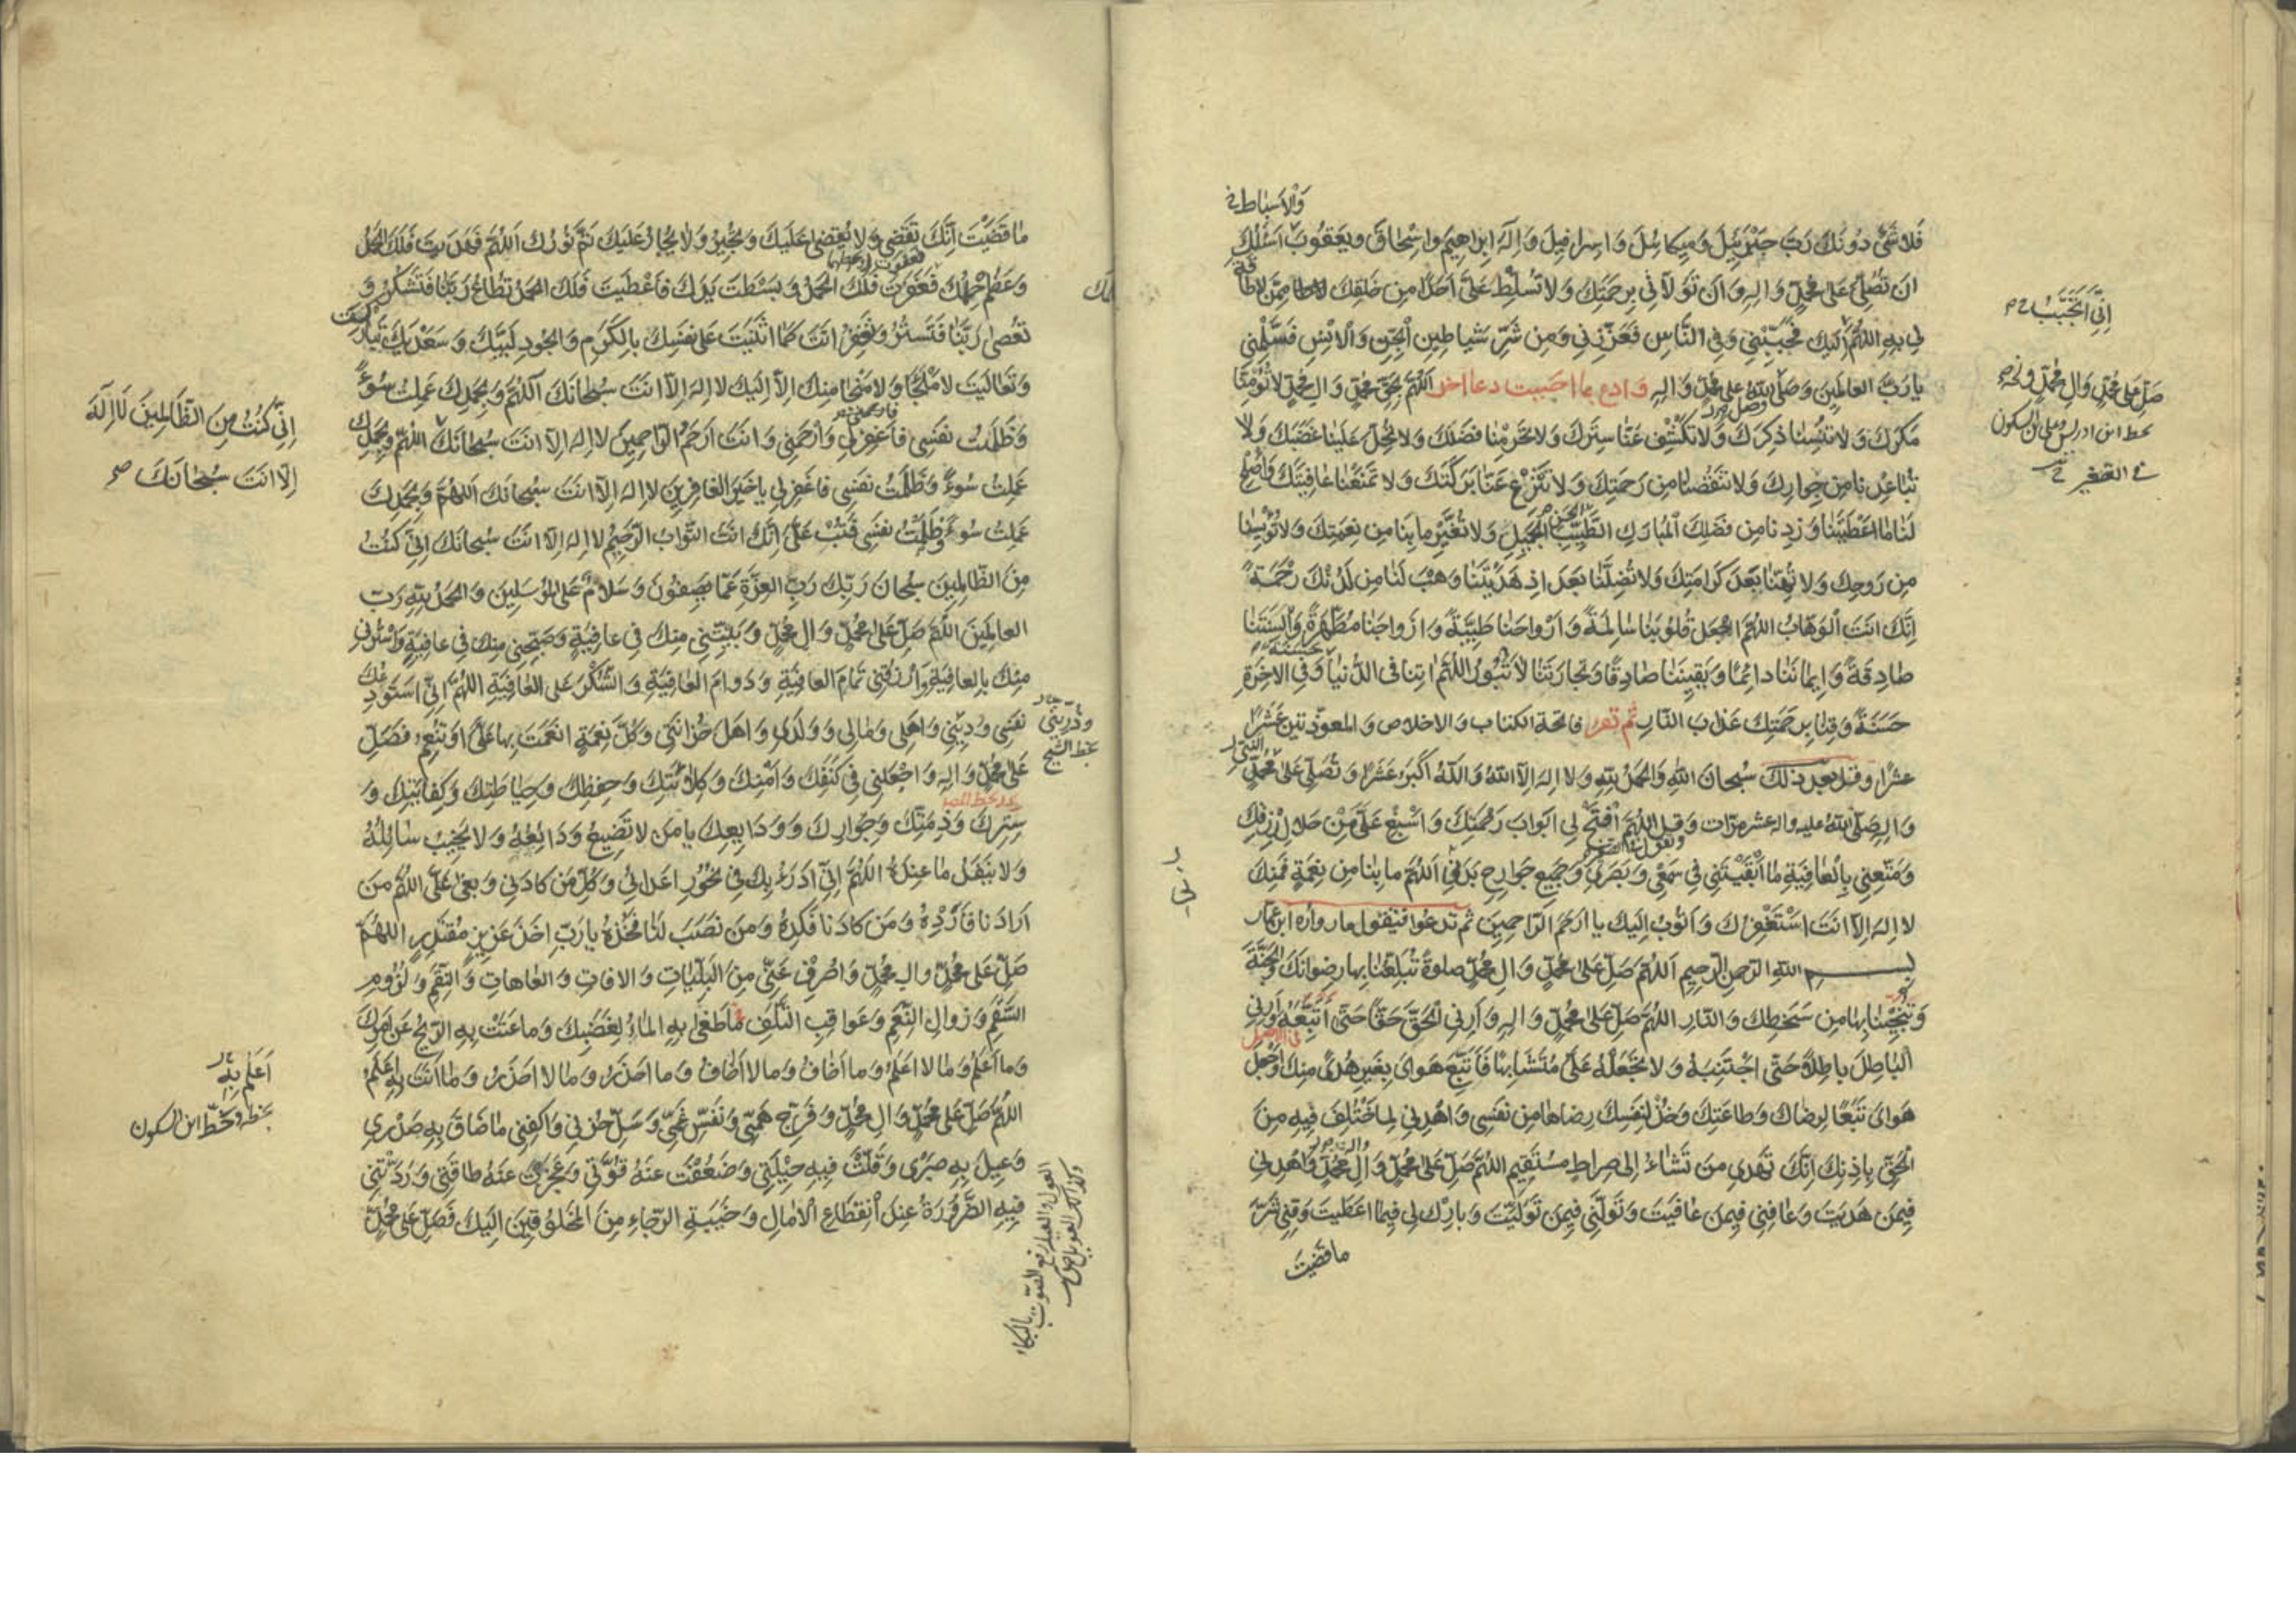 والاسباط
فَلا شَيْءَ دُونَكَ رَبَّ جَبْرَئِيلَ وَمِيكائِلَ وَاِسرافيلَ وَاِلهَ اِبراهِيمَ وَاِسْحاقَ وَيَعقُوبَ اَسْئَلُكَ
اَن تُصَلِّيَ عَلى مُحَمَّدٍ وَالِهِ وَاَن تَوَلّاني بِرَحمَتِكَ وَلا تُسَلِّطْ عَلَيَّ اَحَدًا مِن خَلقِكَ مِمَّن لا طاقَةَ
لي بِهِ اللّهُمَّ اِلَيكَ فَحَبِّبْني وَفِي النّاسِ فَعَزِّزْني وَمِن شَرِّ شَياطينِ الْجِنِّ وَالاِنْسِ فَسَلِّمْني
يا رَبَّ العالَمينَ وَصَلَّى اللهُ عَلى مُحَمَّدٍ وَالِهِ وادع بما احببت دعا اخر اَللّهُمَّ بِحَقِّ مُحَمَّدٍ وَالِ مُحَمَّدٍ لا تُؤْمِنّا
مَكرَكَ وَلا تُنْسِنا ذِكرَكَ وَلا تَكْشِفْ عَنّا سِترَكَ وَلا تَحْرِمْنا فَضلَكَ وَلا تُحِلَّ عَلَينا غَضَبَكَ وَلا
تُباعِدنا مِن جِوارِكَ وَلا تَنقُصنا مِن رَحمَتِكَ وَلا تَنْزَعْ عَنّا بَرَكَتَكَ وَلا تَمنَعْنا عافِيَتَكَ وَاَصْلِحْ
لَنا ما اَعْطَيْتَنا وَزِدنا مِن فَضلِكَ الْمُبارَكِ الطَّيِّبِ الْجَميلِ وَلا تُغَيِّرْ ما بِنا مِن نِعمَتِكَ وَلا تُؤْيِسنا
مِن رَوحِكَ وَلا تُهِنّا بَعدَ كَرامَتِكَ وَلا تُضِلَّنا بَعدَ اِذ هَدَيْتَنا وَهَبْ لَنا مِن لَدُنْكَ رَحْمَةً
اِنَّكَ اَنتَ الْوَهّابُ اللّهُمَّ اجْعَل قُلُوبَنا سالِمَةً وَاَرْواحَنا طَيِّبَةً وَاَزْواجَنا مُطَهَّرَةً وَاَلسِنَتَنا
صادِقَةً وَاِيمانَنا دائِمًا وَيَقينَنا صادِقًا وَتِجارَتَنا لا تَبُورُ اللّهُمَّ اتِنا في الدُّنيا وَفِي الاخِرَةِ
حَسَنَةً وَقِنا بِرَحمَتِكَ عَذابَ النّارِ ثم تقرء فاتحة الكتاب والاخلاص والمعوذتين عَشْرًا
عشرًا وقل بعد ذلك سُبحانَ اللهِ وَالحَمدُ للهِ وَلا اِلهَ اِلّا اللهُ وَاللهُ اَكْبَرُ عَشْرًا وَتُصَلِّي عَلى مُحَمَّدٍ
وَالِهِ صَلَّى اللهُ عليه واله عشر مرّات وَقُلِ اللّهُمَّ افْتَحْ لي اَبوابَ رَحْمَتِكَ وَاَسْبِغْ عَلَيَّ مِنْ حَلالِ رِزْقِكَ
وَمَتِّعني بِالْعافِيَةِ ما اَبْقَيْتَني في سَمعي وَبَصَري وَجَميعِ جَوارِحِ بَدَني اَللّهُمَّ ما بِنا مِن نِعمَةٍ فَمِنكَ
لا اِلهَ اِلّا اَنتَ اَسْتَغْفِرُكَ وَاَتُوبُ اِلَيكَ يا اَرحَمَ الرّاحِمينَ ثم تدعوا فتقول ما رواه ابن عمار
بسم اللهِ الرَّحمنِ الرَّحيمِ اَللّهُمَّ صَلِّ عَلى مُحَمَّدٍ وَالِ مُحَمَّدٍ صلوةً تُبَلِّغُنا بِها رِضوانَكَ وَالجَنَّةَ
وَتُنْجِينا بِها مِن سَخَطِكَ وَالنّارِ اللّهُمَّ صَلِّ عَلى مُحَمَّدٍ وَالِهِ وَاَرِني الْحَقَّ حَقًّا حَتّى اَتَّبِعَهُ وَاَرِني
الْباطِلَ باطِلًا حَتّى اَجْتَنِبَهُ وَلا تَجْعَلْهُ عَلَيَّ مُتَشابِهًا فَاَتَّبِعَ هَوايَ بِغَيرِ هُدًى مِنكَ وَاجْعَل
هَوايَ تَبَعًا لِرِضاكَ وَطاعَتِكَ وَخُذْ لِنَفسِكَ رِضاها مِن نَفسي وَاهْدِني لِما اخْتُلِفَ فيهِ مِنَ
الْحَقِّ بِاِذنِكَ اِنَّكَ تَهدي مَن تَشاءُ اِلى صِراطٍ مُستَقيمٍ اللّهُمَّ صَلِّ عَلى مُحَمَّدٍ وَالِ مُحَمَّدٍ وَاهْدِني
فيمَن هَدَيتَ وَعافِني فيمَن عافَيتَ وَتَوَلَّني فيمَن تَوَلَّيتَ وَبارِك لي فيما اَعطَيتَ وَقِني شَرَّ
ما قضيت
صَلِّ عَلى مُحَمَّدٍ وَالِ مُحَمَّدٍ
ما قَضَيْتَ اِنَّكَ تَقضي وَلا يُقضى عَلَيكَ وَتُجيرُ وَلا يُجارُ عَلَيكَ تَمَّ نُورُكَ اَللّهُمَّ فَهَدَيتَ فَلَكَ الحَمدُ
وَعَظُمَ حِلمُكَ فَعَفَوتَ فَلَكَ الحَمدُ وَبَسَطتَ يَدَكَ فَاَعْطَيتَ فَلَكَ الحَمدُ تُطاعُ رَبَّنا فَتَشكُرُ وَ
تُعصى رَبَّنا فَتَستُرُ وَتَغفِرُ اَنتَ كَما اَثنَيتَ عَلى نَفسِكَ بِالكَرَمِ وَالجُودِ لَبَّيكَ وَسَعدَيكَ تَبارَكتَ
وَتَعالَيتَ لا مَلجَأ وَلا مَنجا مِنكَ اِلّا اِلَيكَ لا اِلهَ اِلّا اَنتَ سُبحانَكَ اَللّهُمَّ وَبِحَمدِكَ عَمِلتُ سُوءً
وَظَلَمتُ نَفسي فَاغفِر لي وَارْحَمني وَاَنتَ اَرحَمُ الرّاحِمينَ لا اِلهَ اِلّا اَنتَ سُبحانَكَ اللّهُمَّ وَبِحَمدِكَ
عَمِلتُ سُوءً وَظَلَمتُ نَفسي فَاغفِر لي يا خَيرَ الغافِرينَ لا اِلهَ اِلّا اَنتَ سُبحانَكَ اَللّهُمَّ وَبِحَمدِكَ
عَمِلتُ سُوءً وَظَلَمتُ نَفسي فَتُبْ عَلَيَّ اِنَّكَ اَنتَ التَّوّابُ الرَّحيمُ لا اِلهَ اِلّا اَنتَ سُبحانَكَ اِنّي كُنتُ
مِنَ الظّالِمينَ سُبحانَ رَبِّكَ رَبِّ العِزَّةِ عَمّا يَصِفُونَ وَسَلامٌ عَلَى المُرسَلينَ وَالحَمدُ للهِ رَبِّ
العالَمينَ اَللّهُمَّ صَلِّ عَلى مُحَمَّدٍ وَالِ مُحَمَّدٍ وَبَيِّتْني مِنكَ في عافِيَةٍ وَصَبِّحني مِنكَ في عافِيَةٍ وَاسْتُرني
مِنكَ بِالعافِيَةِ وَارْزُقني تَمامَ العافِيَةِ وَدَوامَ العافِيَةِ وَالشُّكرَ عَلى العافِيَةِ اللّهُمَّ اِنّي اَستَودِعُكَ
نَفسي وَديني وَاَهلي وَمالي وَوَلَدي وَاَهلَ حُزانَتي وَكُلَّ نِعمَةٍ اَنعَمتَ بِها عَلَيَّ اَو تُنعِمُ فَصَلِّ
عَلى مُحَمَّدٍ وَالِهِ وَاجْعَلني في كَنَفِكَ وَاَمْنِكَ وَكِلائَتِكَ وَحِفظِكَ وَحِياطَتِكَ وَكِفايَتِكَ وَ
سِترِكَ وَذِمَّتِكَ وَجِوارِكَ وَوَدايِعِكَ يا مَن لا تَضيعُ وَدائِعُهُ وَلا يَخيبُ سائِلُهُ
وَلا يَنفَدُ ما عِندَهُ اللّهُمَّ اِنّي اَدرَءُ بِكَ في نُحُورِ اَعدائي وَكُلِّ مَن كادَني وَبَغى عَلَيَّ اللّهُمَّ مَن
اَرادَنا فَاَرِدْهُ وَمَن كادَنا فَكِدهُ وَمَن نَصَبَ لَنا فَخُذهُ يا رَبِّ اَخذَ عَزيزٍ مُقتَدِرٍ اللّهُمَّ
صَلِّ عَلى مُحَمَّدٍ والِ مُحَمَّدٍ وَاصْرِف عَنّي مِنَ البَلِيّاتِ وَالافاتِ وَالعاهاتِ وَالنِّقَمِ وَلُزُومِ
السَّقَمِ وَزَوالِ النِّعَمِ وَعَواقِبِ التَّلَفِ ما طَغى بِهِ الماءُ لِغَضَبِكَ وَما عَتَتْ بِهِ الرّيحُ عَن اَمرِكَ
وَما اَعلَمُ وَما لا اَعلَمُ وَما اَخافُ وَما لا اَخافُ وَما اَحذَرُ وَما لا اَحذَرُ وَما اَنتَ بِهِ اَعلَمُ
اللّهُمَّ صَلِّ عَلى مُحَمَّدٍ وَالِ مُحَمَّدٍ وَفَرِّج هَمّي وَنَفِّس غَمّي وَسَلِّ حُزني وَاكفِني ما ضاقَ بِهِ صَدري
وَعيلَ بِهِ صَبري وَقَلَّتْ فيهِ حيلَتي وَضَعُفَتْ عَنهُ قُوَّتي وَعَجَزَتْ عَنهُ طاقَتي وَرَدَّتني
فيهِ الضَّرُورَةُ عِندَ انقِطاعِ الامالِ وَخَيبَةِ الرَّجاءِ مِنَ المَخلُوقينَ اِلَيكَ فَصَلِّ عَلى مُحَمَّدٍ
اِنّي كُنتُ مِنَ الظّالِمينَ لا اِلهَ
اِلّا اَنتَ سُبحانَكَ
وَذُرِّيَّتي
بخط الشيخ
اَعلَم بِهِ
بخطه وبخط ابن السكون